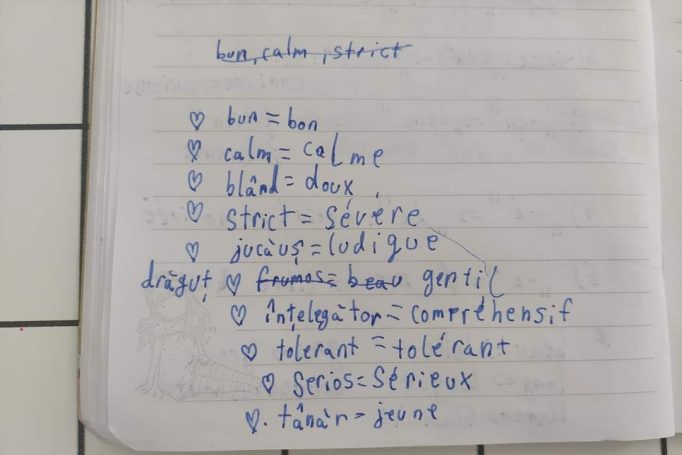 bun, calm, strict
bun = bon
calm = calme
blând = doux
strict = sévère
jucăuș = ludique
drăguț frumos = beau gentil
înțelegător = compréhensif
tolerant = tolérant
serios = sérieux
tânăr = jeune